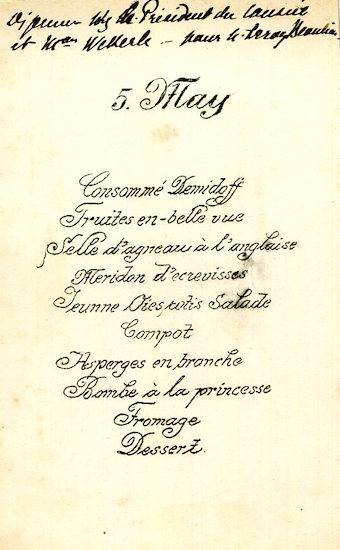 Déjeuner chez le Président du Conseil
et Mme Wekerle - pour M. Leroy Beaulieu
5. May
Consommé Demidoff
Truites en-belle vue
Selle d'agneau à l'anglaise
Meridon d'ecrevisses
Jeunne Oies, rotis Salade
Compot
Asperges en branche
Bombe à la princesse
Fromage
Dessert.